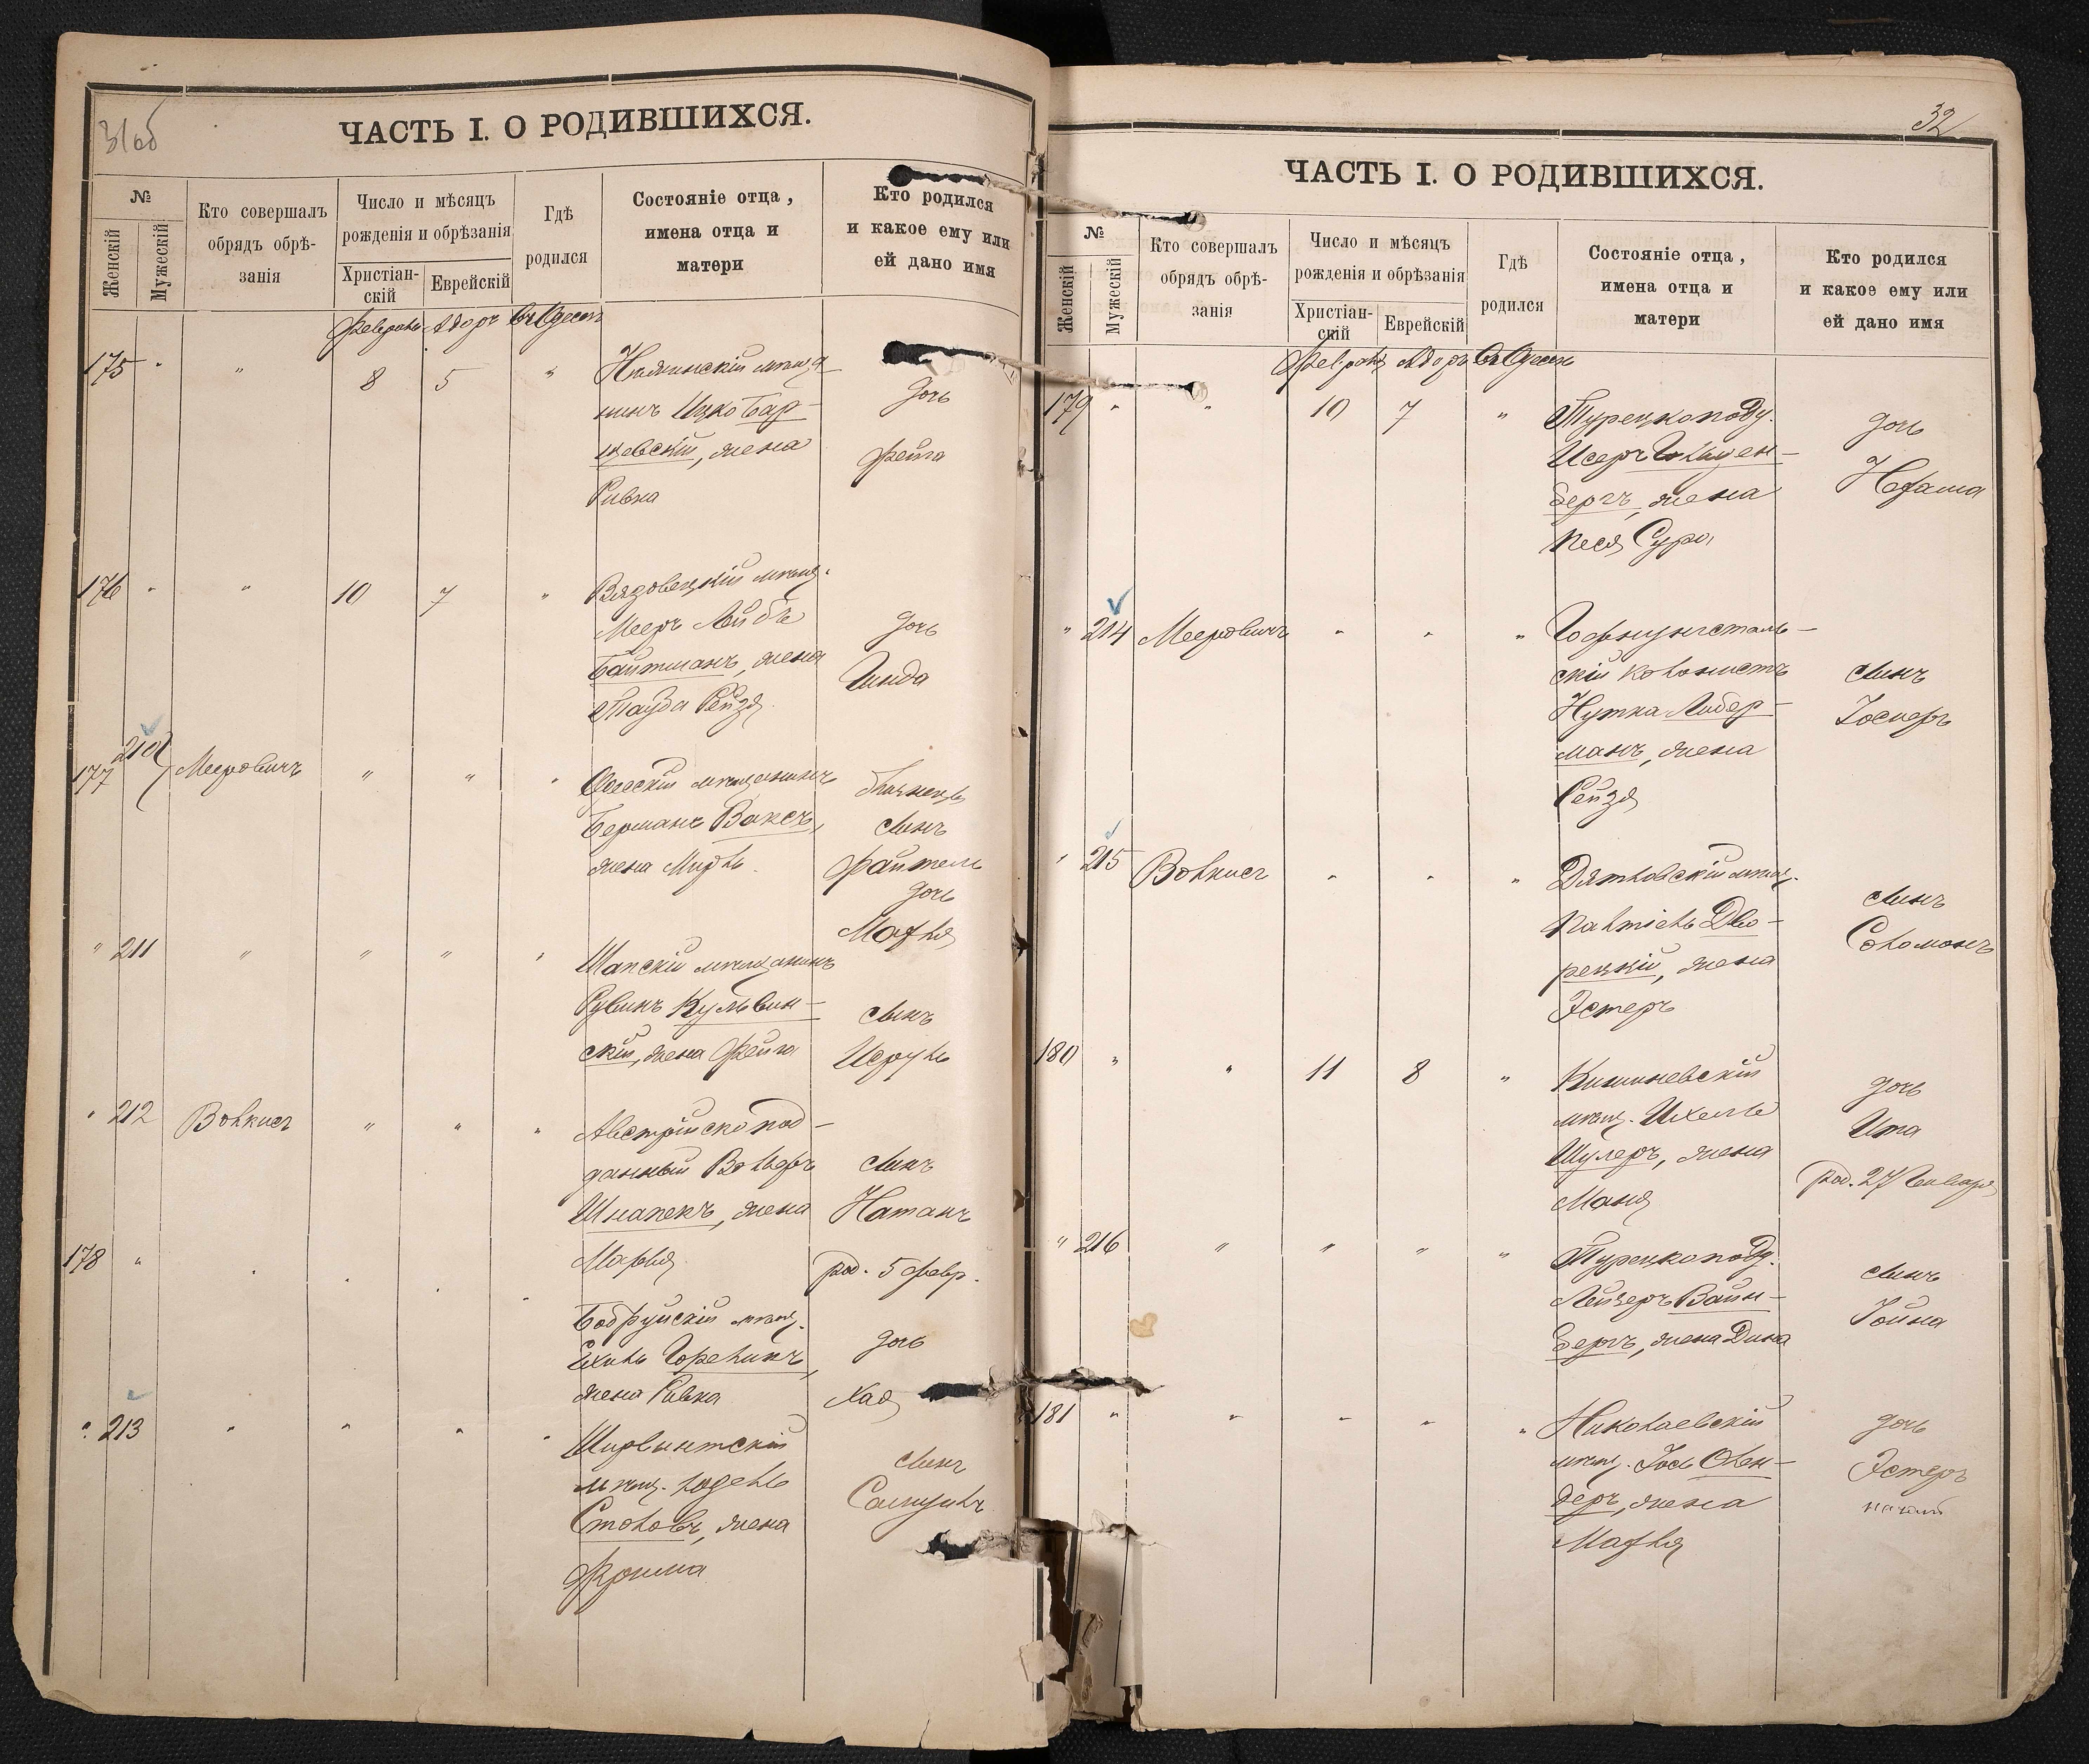 31об
ЧАСТЬ I. О РОДИВШИХСЯ.
№
Женскій
Мужескій
Кто совершалъ
обрядъ обрѣ-
занія
Число и мѣсяцъ
рожденія и обрѣзанія
Христіан-
скій
Еврейскій
Гдѣ
родился
Состояніе отца,
имена отца и
матери
Кто родился
и какое ему или
ей дано имя
Февраль Адоръ въ Одессѣ
175 " " 8 5 "
нинъ Ицко Бар-
щевскій, жена
Ривка
дочь
Фейга
176 " " 10 7 "
Мееръ Лейбъ
Байтманъ, жена
Рейзя
дочь
Гинда
177 210 Мееровичъ " " "
Одесскій мѣщанинъ
Берманъ Ваксъ,
жена
близнецы
сынъ
Файтель
дочь
" 211 " " " "
мѣщанинъ
Рувинъ Кульвин-
скій, жена Фейга
сынъ
" 212 Волкисъ " " "
Австрійско под-
данный Вольфъ
Шнапекъ, жена
сынъ
Натанъ
род. 5 февр.
178 " " " " "
Бобруйскій мѣщ.
жена Ривка
дочь
Хая
" 213 " " " "
Ширвинтскій
мѣщ. Юдель
Столовъ, жена
Фрума
сынъ
Самуилъ
32
ЧАСТЬ I. О РОДИВШИХСЯ.
№
Женскій
Мужескій
Кто совершалъ
обрядъ обрѣ-
занія
Число и мѣсяцъ
рожденія и обрѣзанія
Христіан-
скій
Еврейскій
Гдѣ
родился
Состояніе отца,
имена отца и
матери
Кто родился
и какое ему или
ей дано имя
Февраль Адоръ въ Одессѣ
179 " " 10 7 "
Турецкоподд.
бергъ, жена
Песя Сура
дочь
" 214 Мееровичъ " " "
скій колонистъ
Нутка Либер-
манъ, жена
Рейзя
сынъ
" 215 Волкисъ " " "
Дятловскій мѣщ.
Калтіель Дво-
рецкій, жена
Эстеръ
сынъ
Соломонъ
180 " " 11 8 "
Кишиневскій
мѣщ. Ихелъ
Шулеръ, жена
Маня
дочь
Ита
род. 27 Января
" 216 " " " "
Турецкоподд.
Лейзеръ Вайн-
бергъ, жена Дина
сынъ
Іойна
181 " " " " "
Николаевскій
мѣщ. Іось Олен-
деръ, жена
дочь
Эстеръ